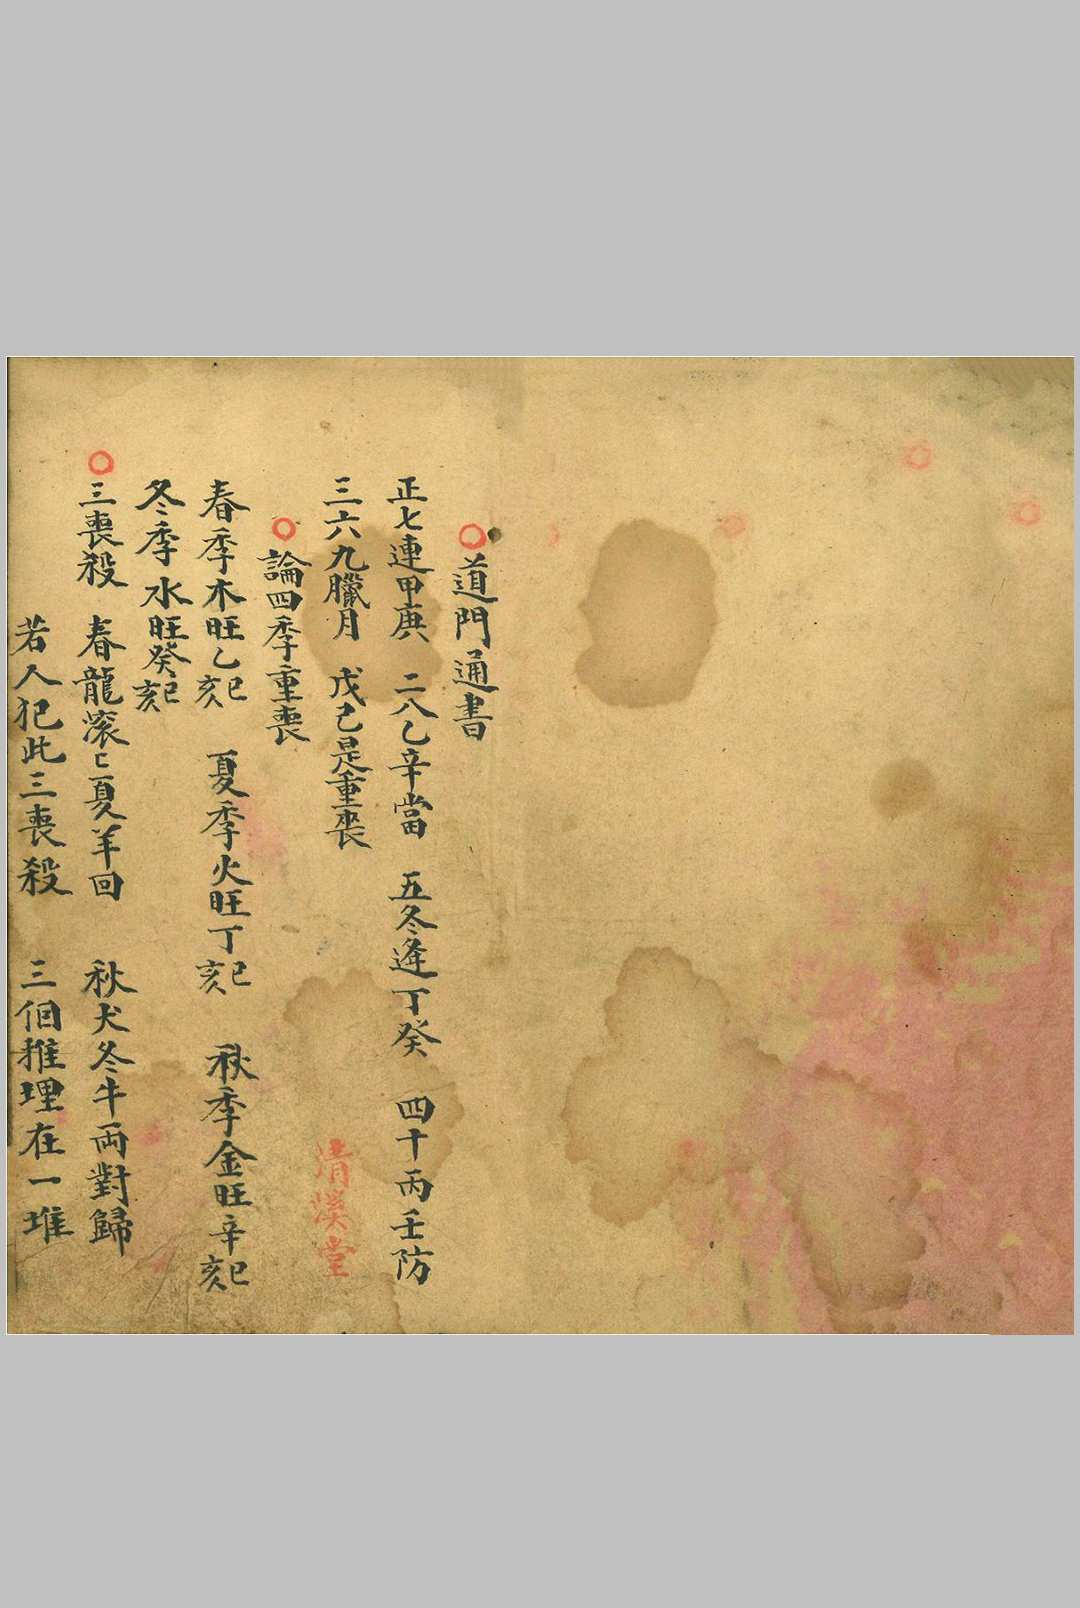 道門通書
正七連甲庚 二八乙辛當 五冬逢丁癸 四十丙壬防
三六九臘月 戊己是重喪
清溪堂
論四季重喪
春季木旺乙巳亥 夏季火旺丁巳亥 秋季金旺辛巳亥
冬季水旺癸巳亥
三喪殺 春龍滚匕夏羊回 秋犬冬牛兩對歸
若人犯此三喪殺 三個推理在一堆